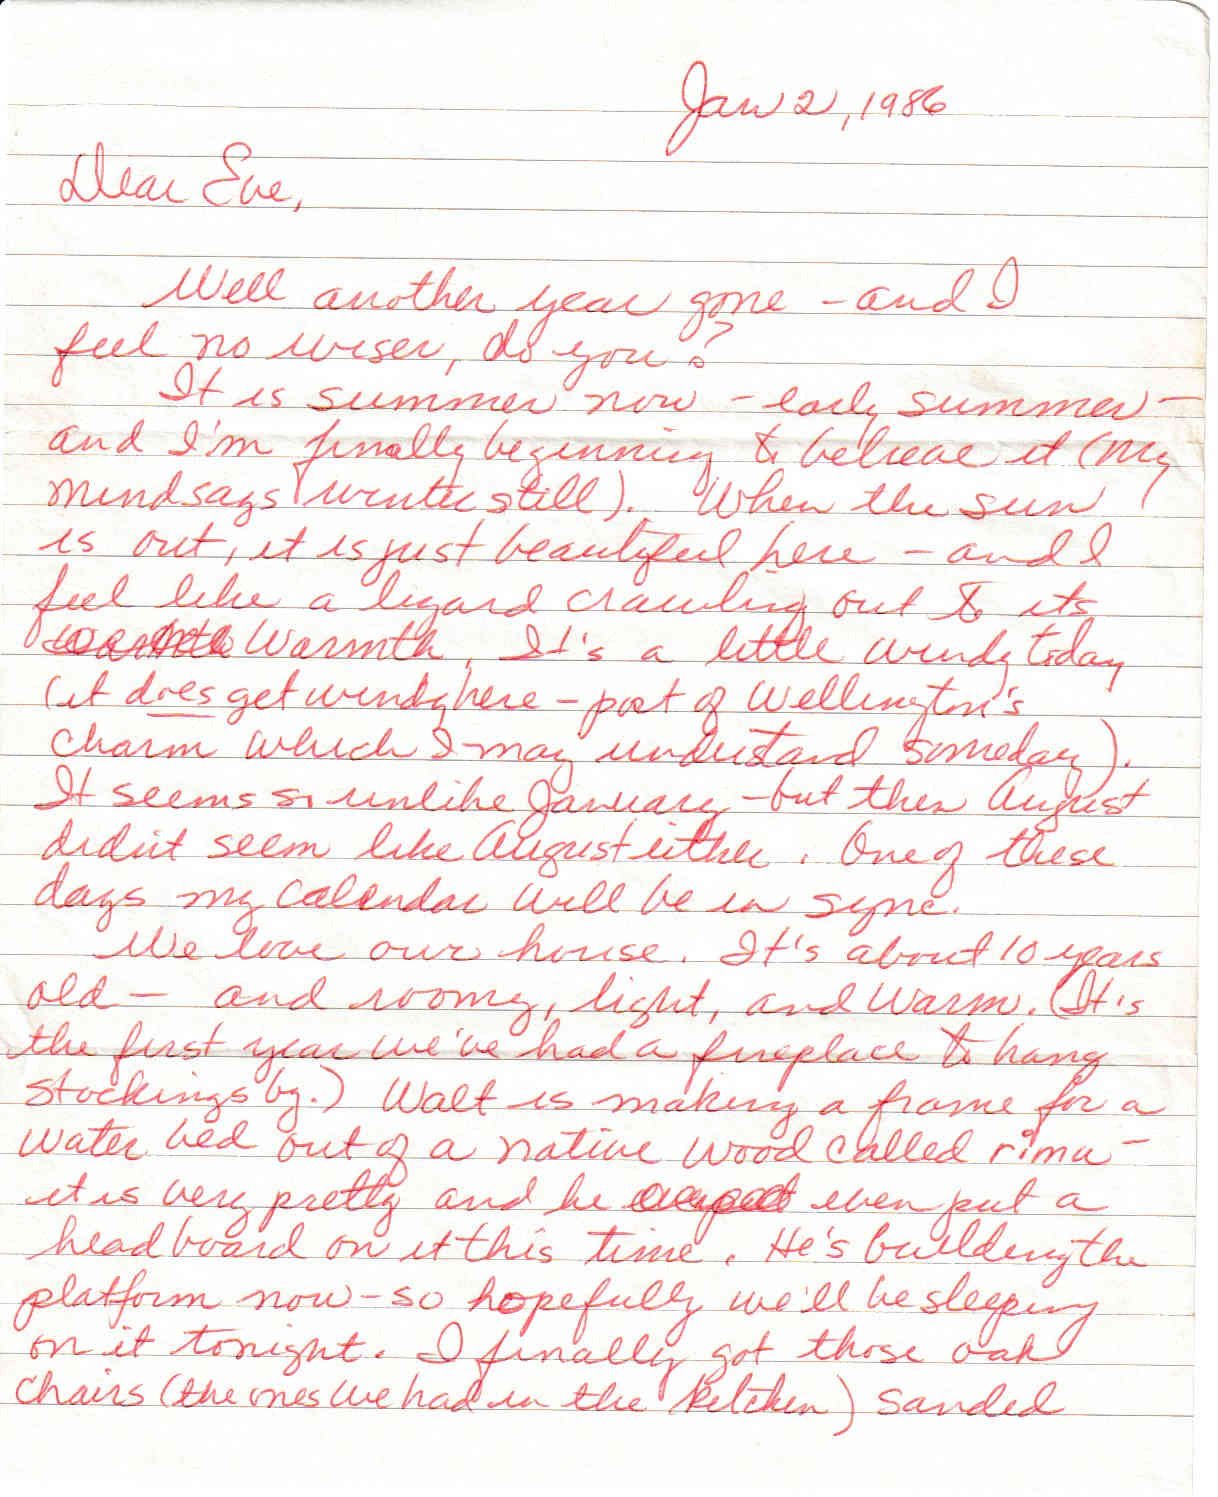 Jan 2, 1986
Dear Eve,
Well another year gone - and I
feel no wiser, do you?
It is summer now - early summer -
and I'm finally beginning to believe it (my
mind says winter still). When the sun
is out, it is just beautiful here - and I
feel like a lizard crawling out to its
warmth. It's a little windy today
(it does get windy here - part of Wellington's
charm which I may understand someday).
It seems so unlike January - but then August
didn't seem like August either. One of these
days my calendar will be in sync.
We love our house. It's about 10 years
old - and roomy, light, and warm. (It's
the first year we've had a fireplace to hang
stockings by.) Walt is making a frame for a
water bed out of a native wood called rimu -
it is very pretty and he even put a
headboard on it this time. He's building the
platform now - so hopefully we'll be sleeping
on it tonight. I finally got those oak
chairs (the ones we had in the kitchen) sanded